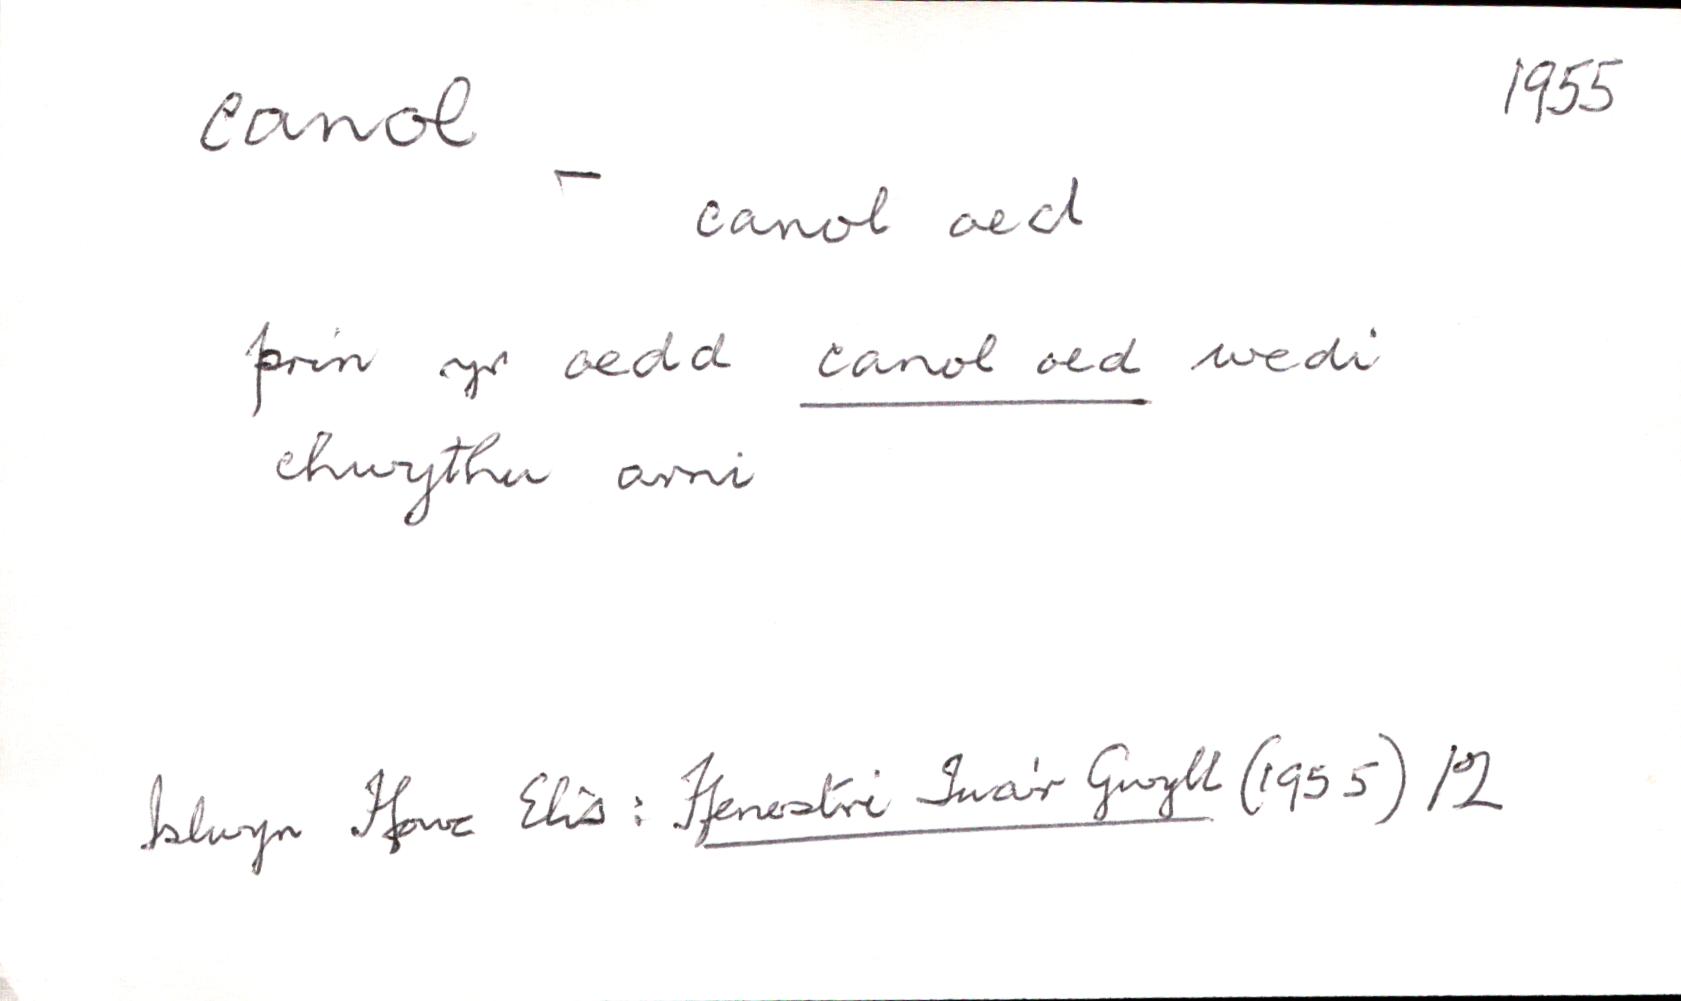 canol
1955
– canol oed
prin yr oedd canol oed wedi
chwythu arni
Islwyn Ffowc Elis: Ffenestri Tua'r Gwyll (1955) 12